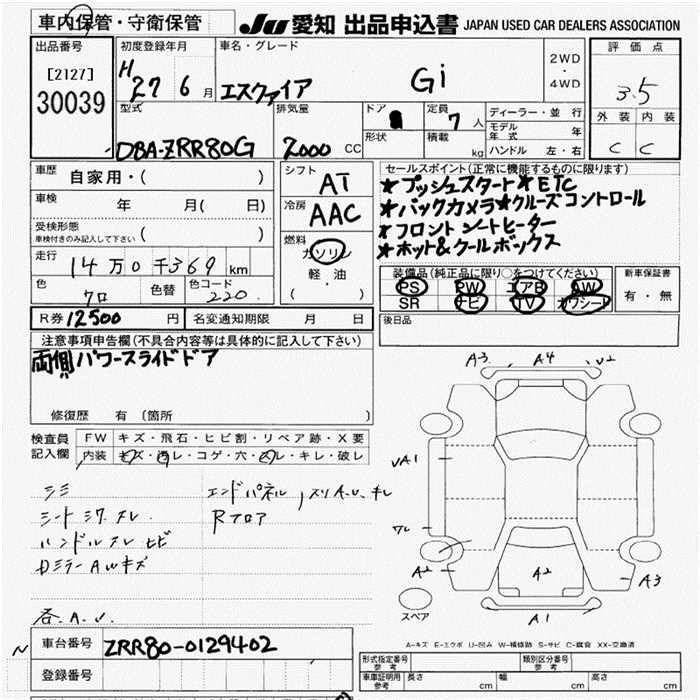 車内保管・守衛保管
JU 愛知 出品申込書 JAPAN USED CAR DEALERS ASSOCIATION
出品番号
[2127]
30039
初度登録年月
H 27 6 月
車名・グレード
エスクァイア Gi
2WD
・
4WD
評価点
3.5
外装 内装
C C
型式
DBA-ZRR80G
排気量
2000 CC
ドア
形状
定員
7 人
積載
kg
ディーラー・並行
モデル年式 年
ハンドル 左・右
車歴
自家用・( )
車検
年 月( 日)
受検形態
車検付きのみ記入して下さい ( )
走行
14万0千369 km
色
クロ
色替
色コード
220
シフト
AT
冷房
AAC
燃料
ガソリン
軽・油
( )
セールスポイント(正常に機能するものに限ります)
★プッシュスタート★ETC
★バックカメラ★クルーズコントロール
★フロントシートヒーター
★ホット&クールボックス
装備品(純正品に限り○をつけてください)
PS PW エアB AW
SR ナビ TV カワシート
新車保証書
有・無
R券 12500 円
名変通知期限 月 日
後日品
注意事項申告欄(不具合内容等は具体的に記入して下さい)
両側パワースライドドア
修復歴 有 (箇所 )
検査員
記入欄
FW キズ・飛石・ヒビ割・リペア跡・X要
内装 キズ・汚レ・コゲ・穴・スレ・キレ・破レ
シミ
シート シワ スレ
ハンドル スレ ヒビ
Dミラー AWキズ
各.A.U.
エンドパネル
Rフロア
A3 A4 U2
UA1
A2
A2
A3
A1
スペア
A-キズ E-エクボ U-凹み W-補修跡 S-サビ C-腐食 XX-交換済
車台番号
ZRR80-0129402
登録番号
型式指定番号
参考
類別区分番号
参考
車庫証明用
参考
長さ cm 幅 cm 高さ cm